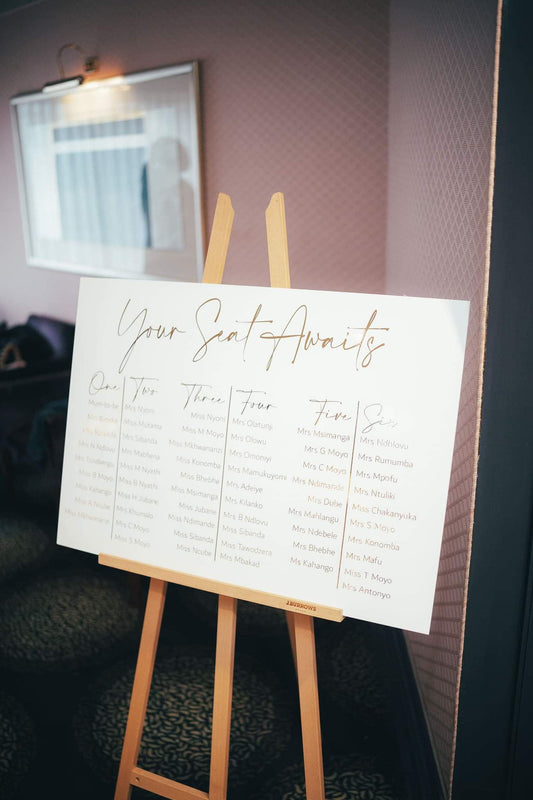 Your Seat Awaits
One
Mum-to-be
Mrs Rumuka
N Ndlovu
B Moyo
A Kahango
R Nare
Miss Mkhwananzi
Two
Mrs Nyoni
Miss Mutama
Mrs Sibanda
Mrs Mabhena
M Nyathi
B Nyathi
H Jubane
Mrs Khumalo
Mrs C Moyo
Miss S Moyo
Three
Miss Nyoni
Miss M Moyo
Miss Mkhwananzi
Miss Konomba
Miss Bhebhe
Miss Msimanga
Miss Jubane
Miss Ndimande
Miss Sibanda
Miss Ncube
Four
Mrs Olatunji
Mrs Oluwu
Mrs Omoniyi
Mrs Mamukuyomi
Mrs Adeiye
Mrs Kilanko
Mrs B Ndlovu
Mrs Sibanda
Mrs Tawodzera
Mrs Mbakad
Five
Mrs Msimanga
Mrs G Moyo
Mrs C Moyo
Mrs Ndimande
Mrs Dube
Mrs Mahlangu
Mrs Ndebele
Mrs Bhebhe
Ms Kahango
Six
Mrs Ndhlovu
Mrs Rumumba
Mrs Mpofu
Mrs Ntuliki
Miss Chakanyuka
Mrs S Moyo
Mrs Konomba
Mrs Mafu
Miss T Moyo
Mrs Antonyo
J.BURROWS